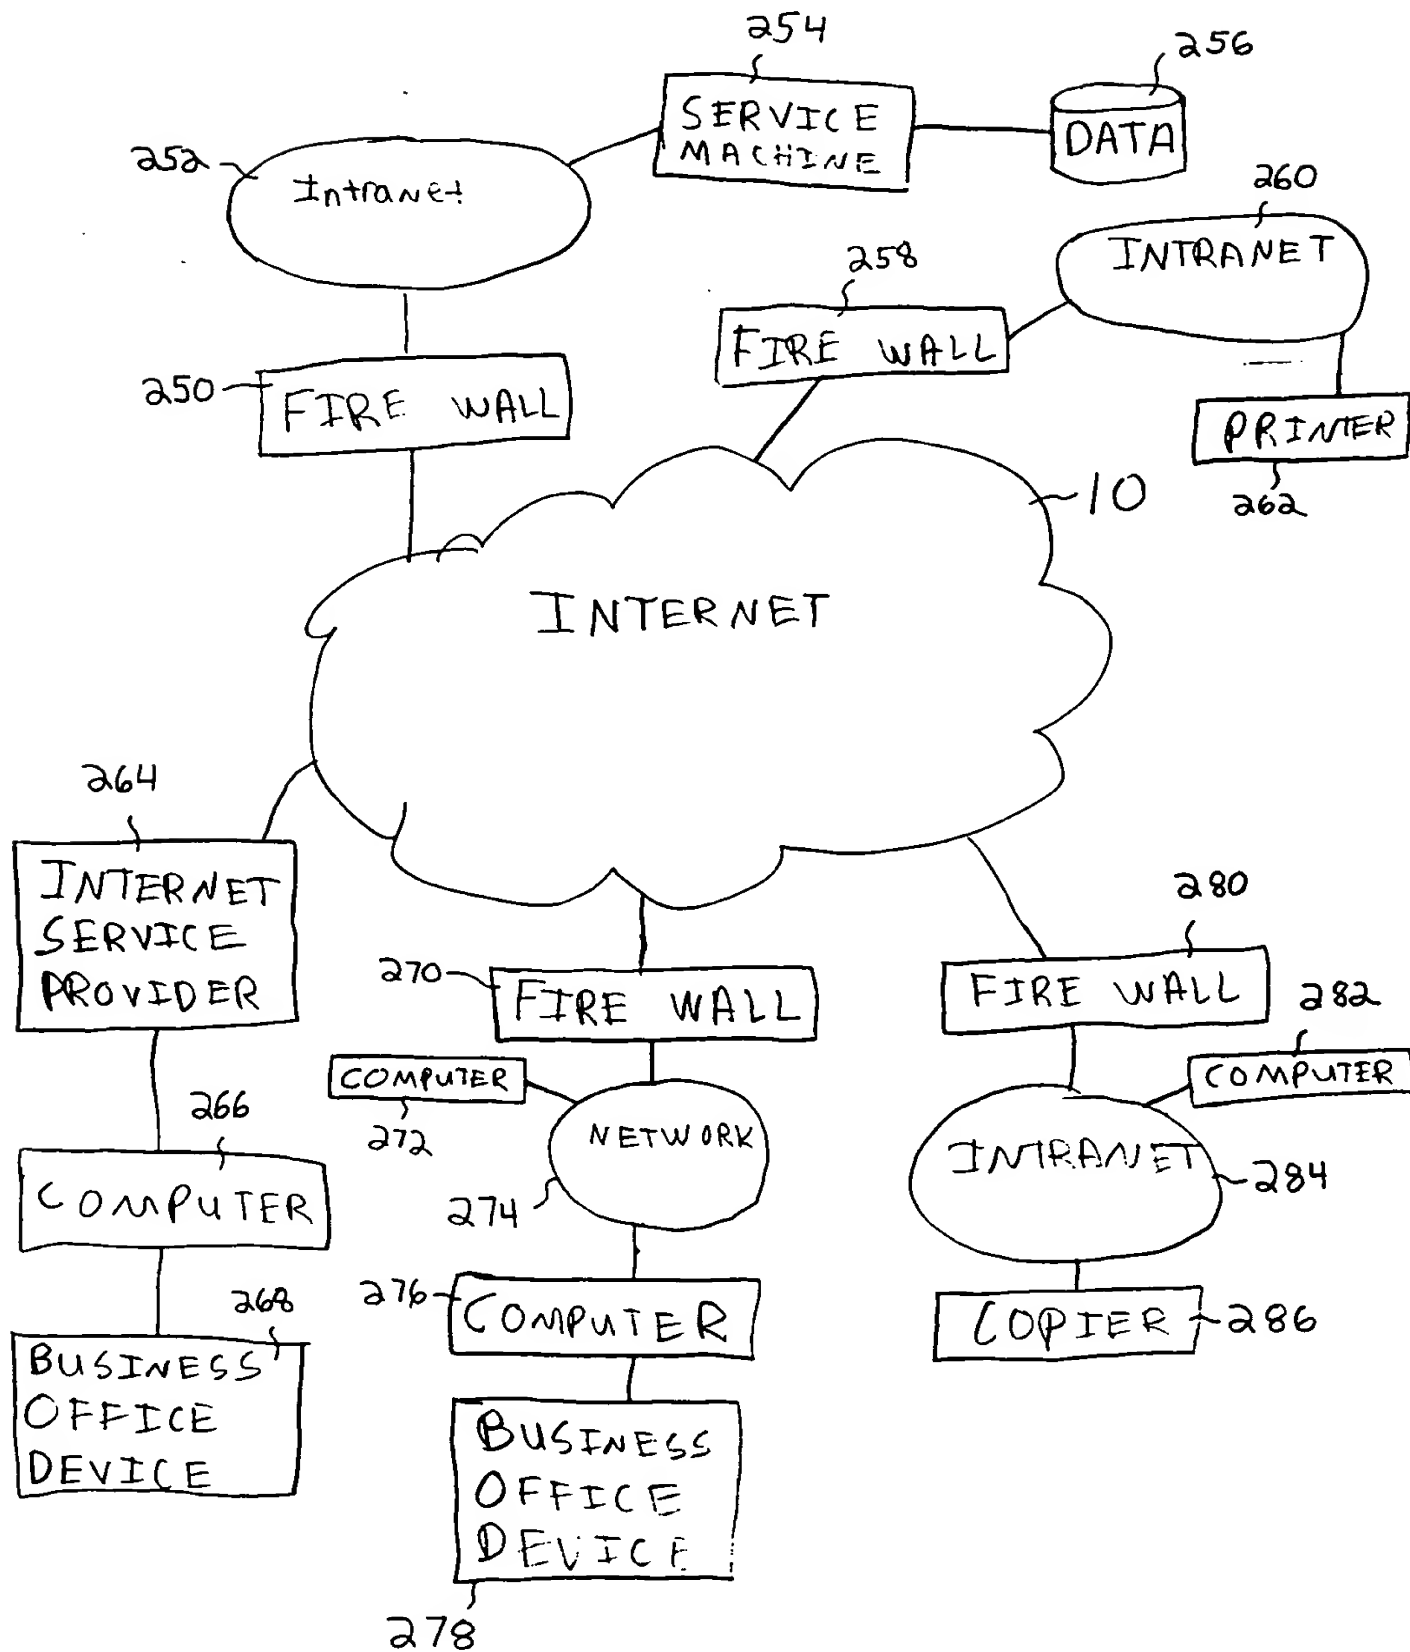 254
256
SERVICE
MACHINE
DATA
252
Intranet
260
INTRANET
258
FIRE WALL
250
FIRE WALL
PRINTER
262
10
INTERNET
264
INTERNET
SERVICE
PROVIDER
280
270
FIRE WALL
FIRE WALL
282
COMPUTER
272
COMPUTER
266
NETWORK
INTRANET
284
COMPUTER
274
276
COMPUTER
268
COPIER
286
BUSINESS
OFFICE
DEVICE
BUSINESS
OFFICE
DEVICE
278